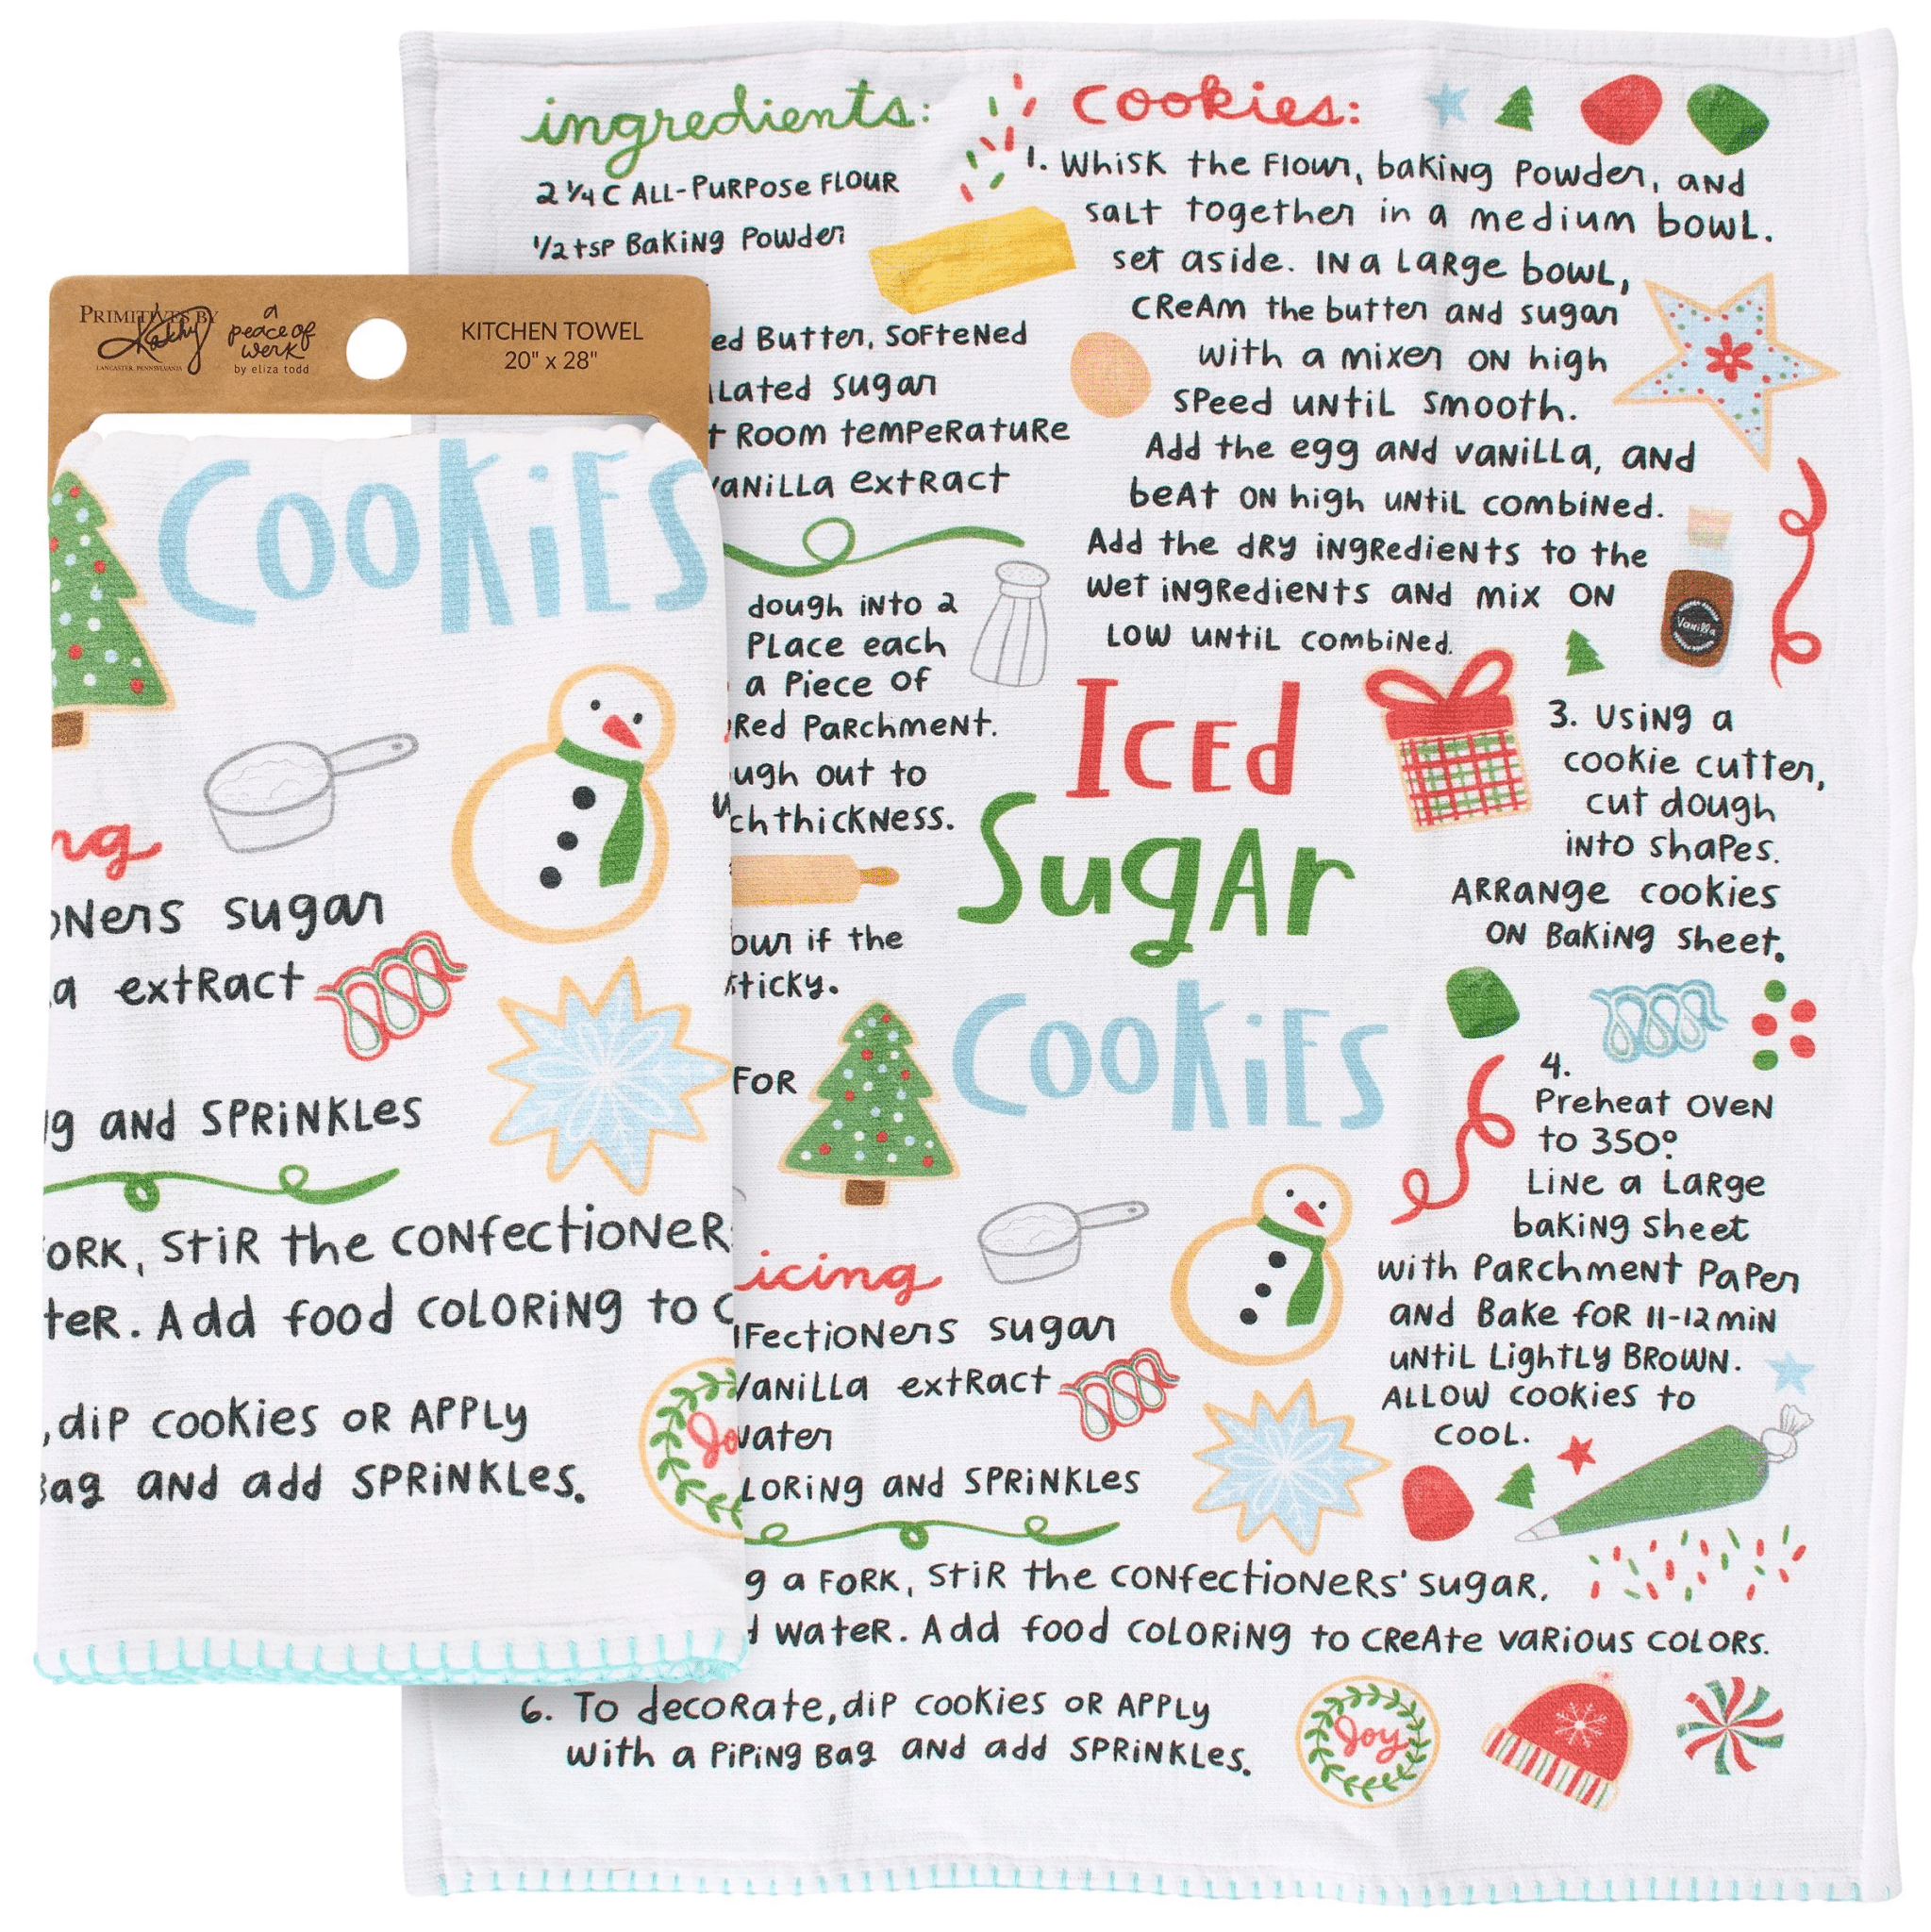 PRIMITIVES BY
Kathy
LANCASTER, PENNSYLVANIA
a
peace of
werk
by eliza todd
KITCHEN TOWEL
20" x 28"
COOKiES
sugar
extract
AND SPRiNKLes
, StiR the
Add food COLORiNg to
, dip cookies OR APPLy
AND add SPRiNKLes.
ingredients:
2 1/4 C ALL-PURPOSe FLOUR
1/2 tsp Baking Powder
Butter, Softened
sugar
Room temperature
extract
dough into 2
Place each
a Piece of
Parchment.
out to
thickness.
if the
sticky.
FOR
Iced
Sugar
Cookies
icing
sugar
Vanilla extract
water
and SPRiNKLes
a FORK, StiR the CONfectioNeRs' sugar,
wateR. Add food COLORiNg to cReAte vaRious coLoRs.
6. To decoRate, dip cookies OR APPLy
with a PiPiNg Bag AND add SPRiNKLes.
cookies:
1. Whisk the Flour, baking Powder, and
salt together in a medium bowl.
set aside. IN a Large bowl,
cream the butter and sugar
with a mixer on high
speed until smooth.
Add the egg and vanilla, and
beat on high until combined.
Add the dry ingredients to the
wet ingredients and mix on
low until combined.
Vanilla
3. Using a
cookie cutter,
cut dough
into shapes.
Arrange cookies
on Baking sheet.
4.
Preheat oven
to 350°.
Line a Large
baking sheet
with Parchment Paper
and Bake for 11-12 min
until Lightly Brown.
Allow cookies to
cool.
Joy